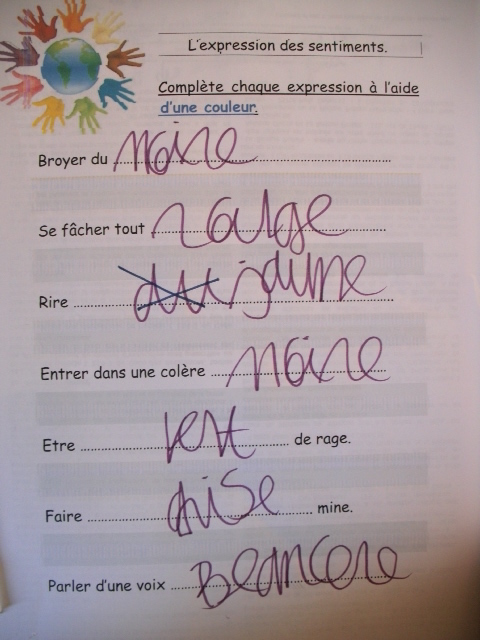 L'expression des sentiments.
Complète chaque expression à l'aide
d'une couleur.
Broyer du noire
Se fâcher tout rouge
Rire jaune
Entrer dans une colère noire
Etre vert de rage.
Faire grise mine.
Parler d'une voix